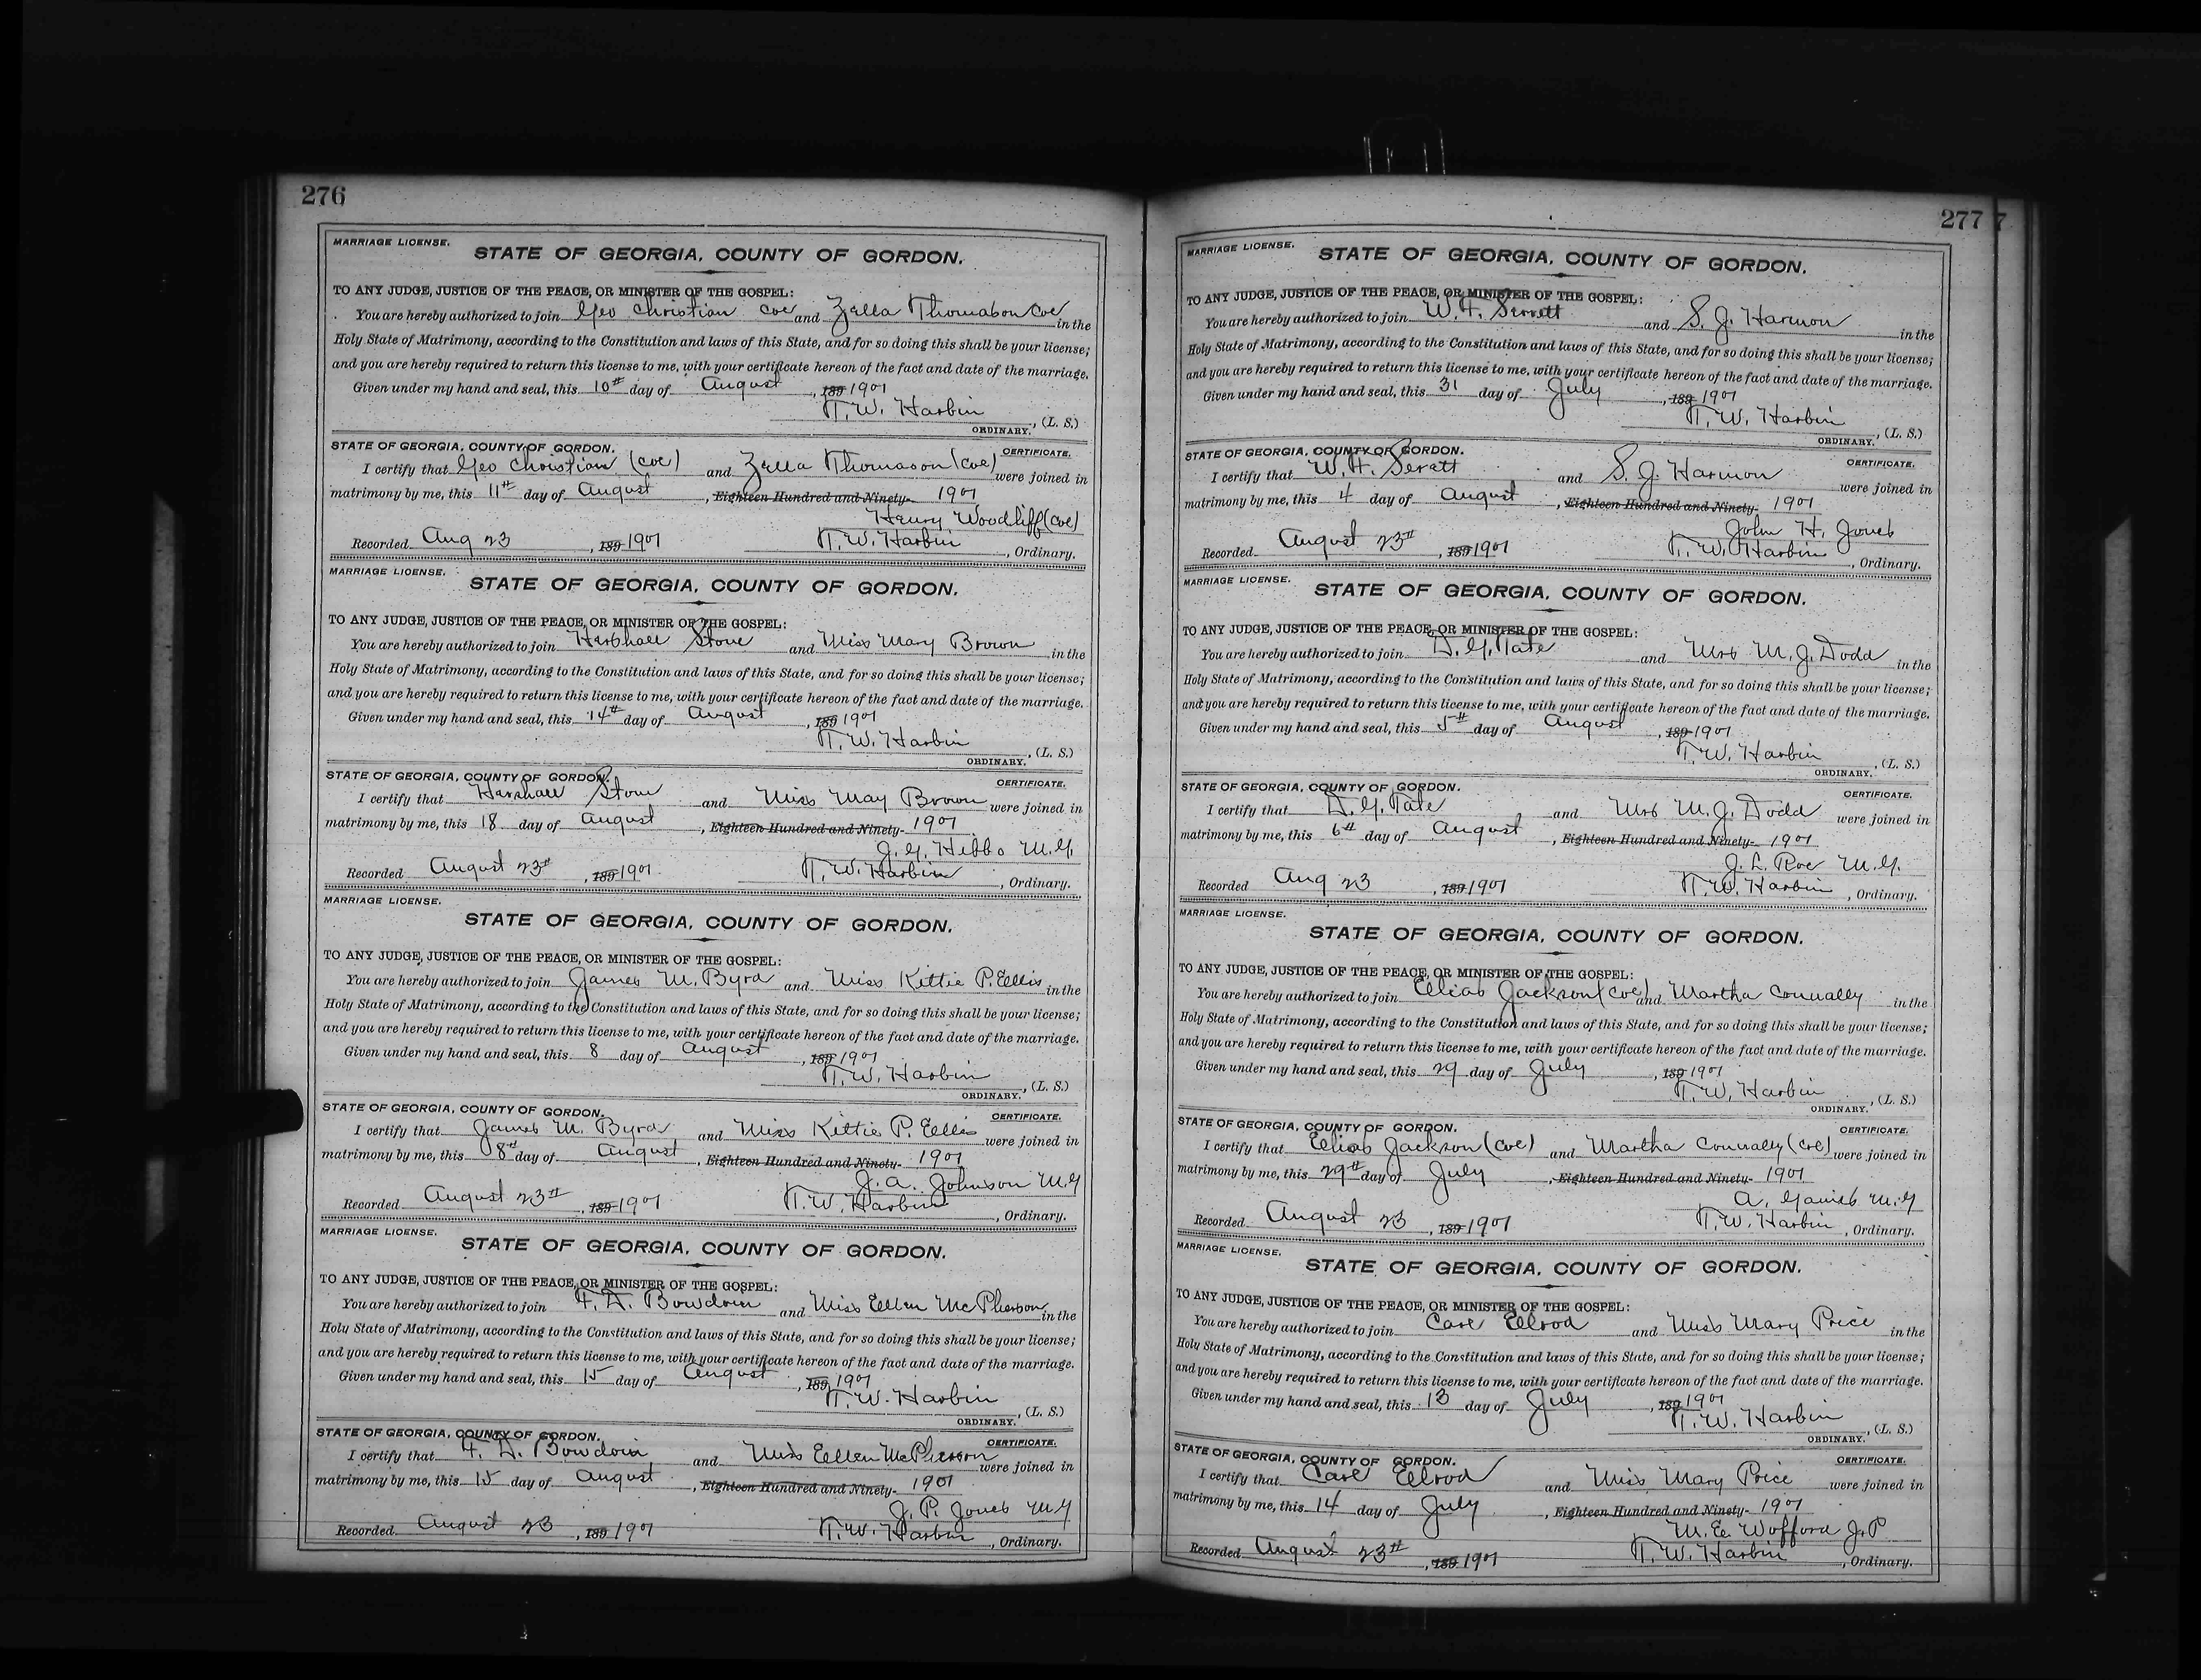 276
MARRIAGE LICENSE.
STATE OF GEORGIA, COUNTY OF GORDON.
TO ANY JUDGE, JUSTICE OF THE PEACE, OR MINISTER OF THE GOSPEL:
You are hereby authorized to join Geo Christian Col and Zella Thomason Col in the
Holy State of Matrimony, according to the Constitution and laws of this State, and for so doing this shall be your license;
and you are hereby required to return this license to me, with your certificate hereon of the fact and date of the marriage.
Given under my hand and seal, this 10th day of August, 189 1901
T. W. Harbin
ORDINARY. (L. S.)
STATE OF GEORGIA, COUNTY OF GORDON. CERTIFICATE.
I certify that Geo Christian (Col) and Zella Thomason (Col) were joined in
matrimony by me, this 11th day of August, Eighteen Hundred and Ninety- 1901
Henry Woodliff (Col)
Recorded Aug 23, 189 1901 T. W. Harbin, Ordinary.
MARRIAGE LICENSE.
STATE OF GEORGIA, COUNTY OF GORDON.
TO ANY JUDGE, JUSTICE OF THE PEACE, OR MINISTER OF THE GOSPEL:
You are hereby authorized to join Hershall Stone and Miss Mary Brown in the
Holy State of Matrimony, according to the Constitution and laws of this State, and for so doing this shall be your license;
and you are hereby required to return this license to me, with your certificate hereon of the fact and date of the marriage.
Given under my hand and seal, this 14th day of August, 189 1901
T. W. Harbin
ORDINARY. (L. S.)
STATE OF GEORGIA, COUNTY OF GORDON. CERTIFICATE.
I certify that Hershall Stone and Miss May Brown were joined in
matrimony by me, this 18 day of August, Eighteen Hundred and Ninety- 1901
J. G. Hibbs M.G.
Recorded August 23rd, 189 1901 T. W. Harbin, Ordinary.
MARRIAGE LICENSE.
STATE OF GEORGIA, COUNTY OF GORDON.
TO ANY JUDGE, JUSTICE OF THE PEACE, OR MINISTER OF THE GOSPEL:
You are hereby authorized to join James M. Byrd and Miss Kittie P. Ellis in the
Holy State of Matrimony, according to the Constitution and laws of this State, and for so doing this shall be your license;
and you are hereby required to return this license to me, with your certificate hereon of the fact and date of the marriage.
Given under my hand and seal, this 8 day of August, 189 1901
T. W. Harbin
ORDINARY. (L. S.)
STATE OF GEORGIA, COUNTY OF GORDON. CERTIFICATE.
I certify that James M. Byrd and Miss Kittie P. Ellis were joined in
matrimony by me, this 8th day of August, Eighteen Hundred and Ninety- 1901
J. A. Johnson M.G
Recorded August 23rd, 189 1901 T. W. Harbin, Ordinary.
MARRIAGE LICENSE.
STATE OF GEORGIA, COUNTY OF GORDON.
TO ANY JUDGE, JUSTICE OF THE PEACE, OR MINISTER OF THE GOSPEL:
You are hereby authorized to join F. A. Bowdoin and Miss Ellen McPherson in the
Holy State of Matrimony, according to the Constitution and laws of this State, and for so doing this shall be your license;
and you are hereby required to return this license to me, with your certificate hereon of the fact and date of the marriage.
Given under my hand and seal, this 15 day of August, 189 1901
T. W. Harbin
ORDINARY. (L. S.)
STATE OF GEORGIA, COUNTY OF GORDON. CERTIFICATE.
I certify that Bowdoin and Miss Ellen McPherson were joined in
matrimony by me, this 15 day of August, Eighteen Hundred and Ninety- 1901
J. P. Jones M.G
Recorded August 23, 189 1901 T. W. Harbin, Ordinary.
277 7
MARRIAGE LICENSE.
STATE OF GEORGIA, COUNTY OF GORDON.
TO ANY JUDGE, JUSTICE OF THE PEACE, OR MINISTER OF THE GOSPEL:
You are hereby authorized to join W. H. and S. J. Harmon in the
Holy State of Matrimony, according to the Constitution and laws of this State, and for so doing this shall be your license;
and you are hereby required to return this license to me, with your certificate hereon of the fact and date of the marriage.
Given under my hand and seal, this 31 day of July, 189 1901
T. W. Harbin
ORDINARY. (L. S.)
STATE OF GEORGIA, COUNTY OF GORDON. CERTIFICATE.
I certify that W. H. Seratt and S. J. Harmon were joined in
matrimony by me, this 4 day of August, Eighteen Hundred and Ninety- 1901
John H. Jones
Recorded August 23rd, 189 1901 T. W. Harbin, Ordinary.
MARRIAGE LICENSE.
STATE OF GEORGIA, COUNTY OF GORDON.
TO ANY JUDGE, JUSTICE OF THE PEACE, OR MINISTER OF THE GOSPEL:
You are hereby authorized to join D. G. Tate and Mrs M. J. Dodd in the
Holy State of Matrimony, according to the Constitution and laws of this State, and for so doing this shall be your license;
and you are hereby required to return this license to me, with your certificate hereon of the fact and date of the marriage.
Given under my hand and seal, this 5th day of August, 189 1901
T. W. Harbin
ORDINARY. (L. S.)
STATE OF GEORGIA, COUNTY OF GORDON. CERTIFICATE.
I certify that D. G. Tate and Mrs M. J. Dodd were joined in
matrimony by me, this 6th day of August, Eighteen Hundred and Ninety- 1901
J. L. Roe M.G.
Recorded Aug 23, 189 1901 T. W. Harbin, Ordinary.
MARRIAGE LICENSE.
STATE OF GEORGIA, COUNTY OF GORDON.
TO ANY JUDGE, JUSTICE OF THE PEACE, OR MINISTER OF THE GOSPEL:
You are hereby authorized to join Elias Jackson (Col) and Martha Connally in the
Holy State of Matrimony, according to the Constitution and laws of this State, and for so doing this shall be your license;
and you are hereby required to return this license to me, with your certificate hereon of the fact and date of the marriage.
Given under my hand and seal, this 29 day of July, 189 1901
T. W. Harbin
ORDINARY. (L. S.)
STATE OF GEORGIA, COUNTY OF GORDON. CERTIFICATE.
I certify that Elias Jackson (Col) and Martha Connally (Col) were joined in
matrimony by me, this 29th day of July, Eighteen Hundred and Ninety- 1901
A. Gaines M.G
Recorded August 23, 189 1901 T. W. Harbin, Ordinary.
MARRIAGE LICENSE.
STATE OF GEORGIA, COUNTY OF GORDON.
TO ANY JUDGE, JUSTICE OF THE PEACE, OR MINISTER OF THE GOSPEL:
You are hereby authorized to join Carl Elrod and Miss Mary Price in the
Holy State of Matrimony, according to the Constitution and laws of this State, and for so doing this shall be your license;
and you are hereby required to return this license to me, with your certificate hereon of the fact and date of the marriage.
Given under my hand and seal, this 13 day of July, 189 1901
T. W. Harbin
ORDINARY. (L. S.)
STATE OF GEORGIA, COUNTY OF GORDON. CERTIFICATE.
I certify that Carl Elrod and Miss Mary Price were joined in
matrimony by me, this 14 day of July, Eighteen Hundred and Ninety- 1901
M. E. Wofford J.P
Recorded August 23rd, 189 1901 T. W. Harbin, Ordinary.